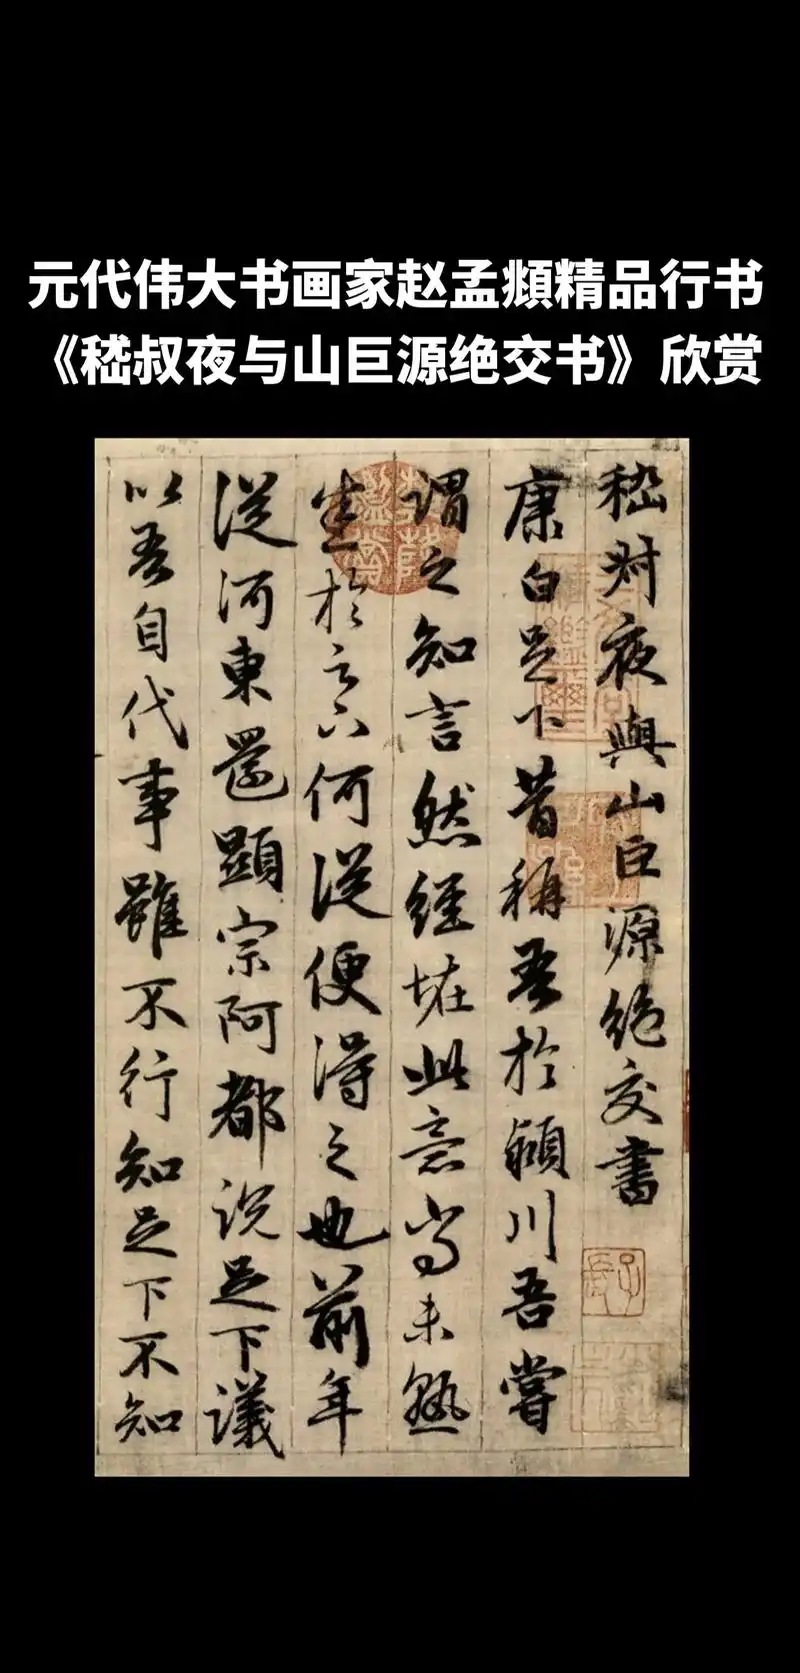 元代伟大书画家赵孟頫精品行书
《嵇叔夜与山巨源绝交书》欣赏
嵇叔夜與山巨源絶交書
康白足下昔稱吾於潁川吾嘗
謂之知言然經怪此意尚未熟
悉於足下何從便得之也前年
從河東還顯宗阿都説足下議
以吾自代事雖不行知足下不知